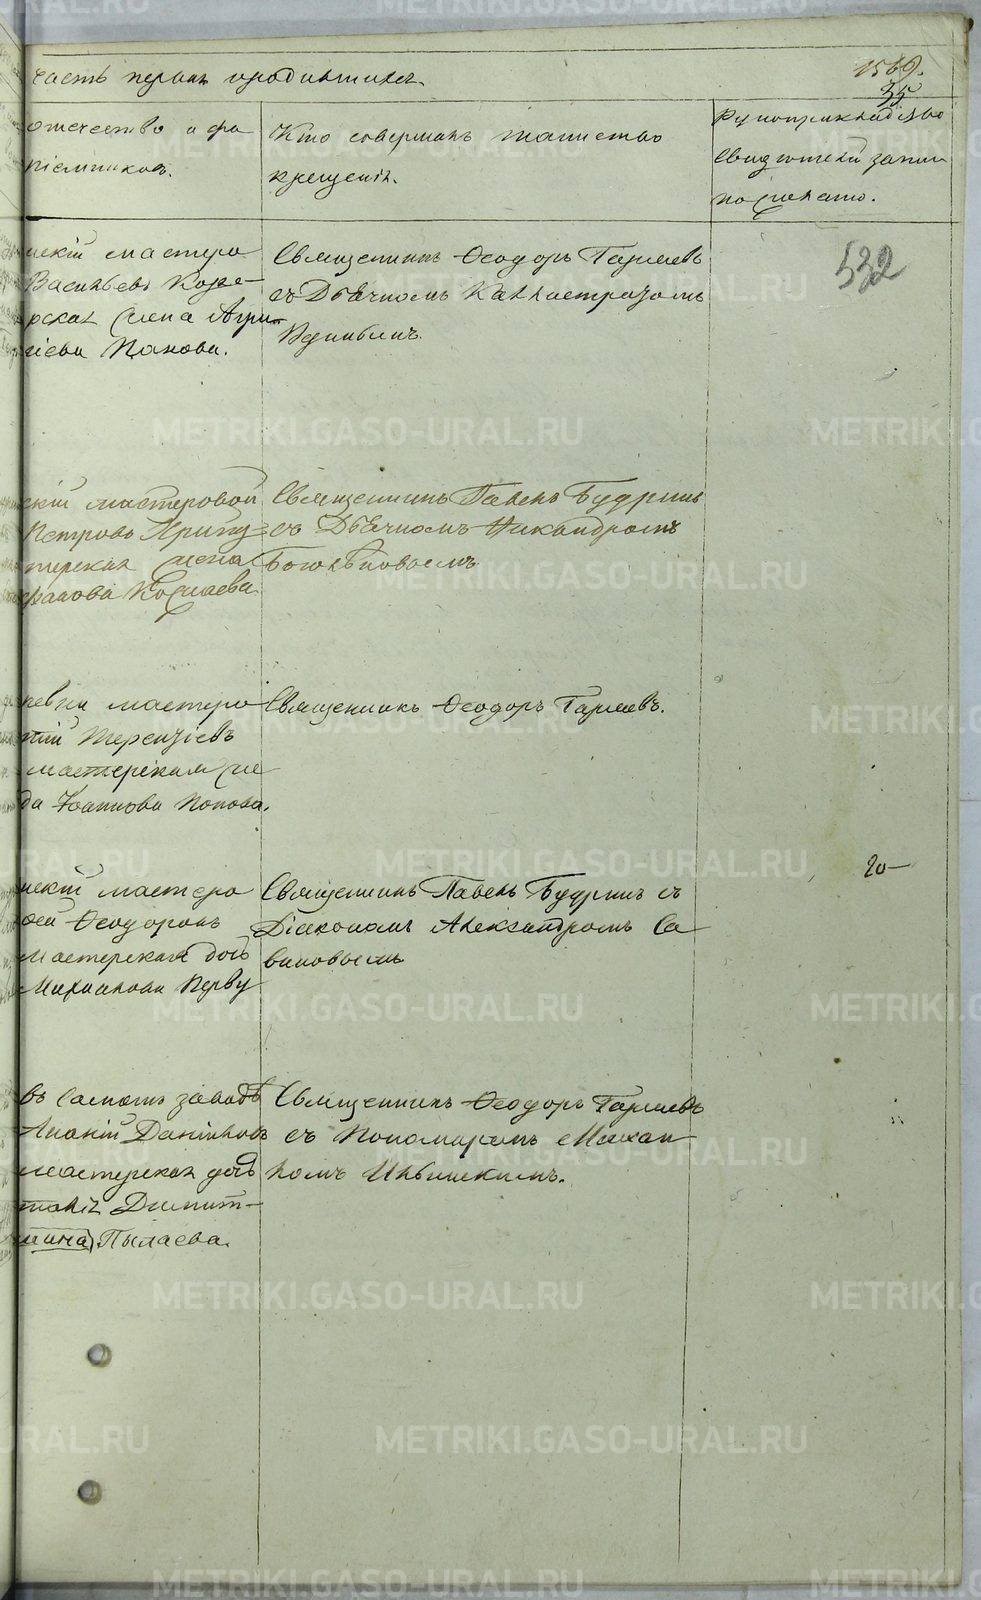 часть первая о родившихся.
1569.
35
отчество и фа
ріемниковъ.
Кто совершалъ таинство
крещенія.
Рукоприкладство
свидѣтелей записи
по желанію.
532
скій мастеро
Васильевъ
рская жена Агри
Панова.
Священникъ Ѳеодоръ Гаряевъ
съ Дьячкомъ Каллистратомъ
скій мастеровой
Петровъ
терская жена
фанова
Священникъ Павелъ Будринъ
съ Дьячкомъ Никандромъ
Боголѣповымъ
мастеро
Терентіевъ
мастерская же
да Іоаннова Попова.
Священникъ Ѳеодоръ Гаряевъ.
скій мастеро
Ѳеодоровъ
мастерская дочь
Михайлова Перву
Священникъ Павелъ Будринъ съ
Діакономъ Александромъ Са
виновымъ
20
въ самомъ заводѣ
Ананій Даниловъ
мастерская дочь
талія Димит-
Пылаева.
Священникъ Ѳеодоръ Гаряевъ
съ Пономаремъ Михаи
ломъ Ильинскимъ.
METRIKI.GASO-URAL.RU